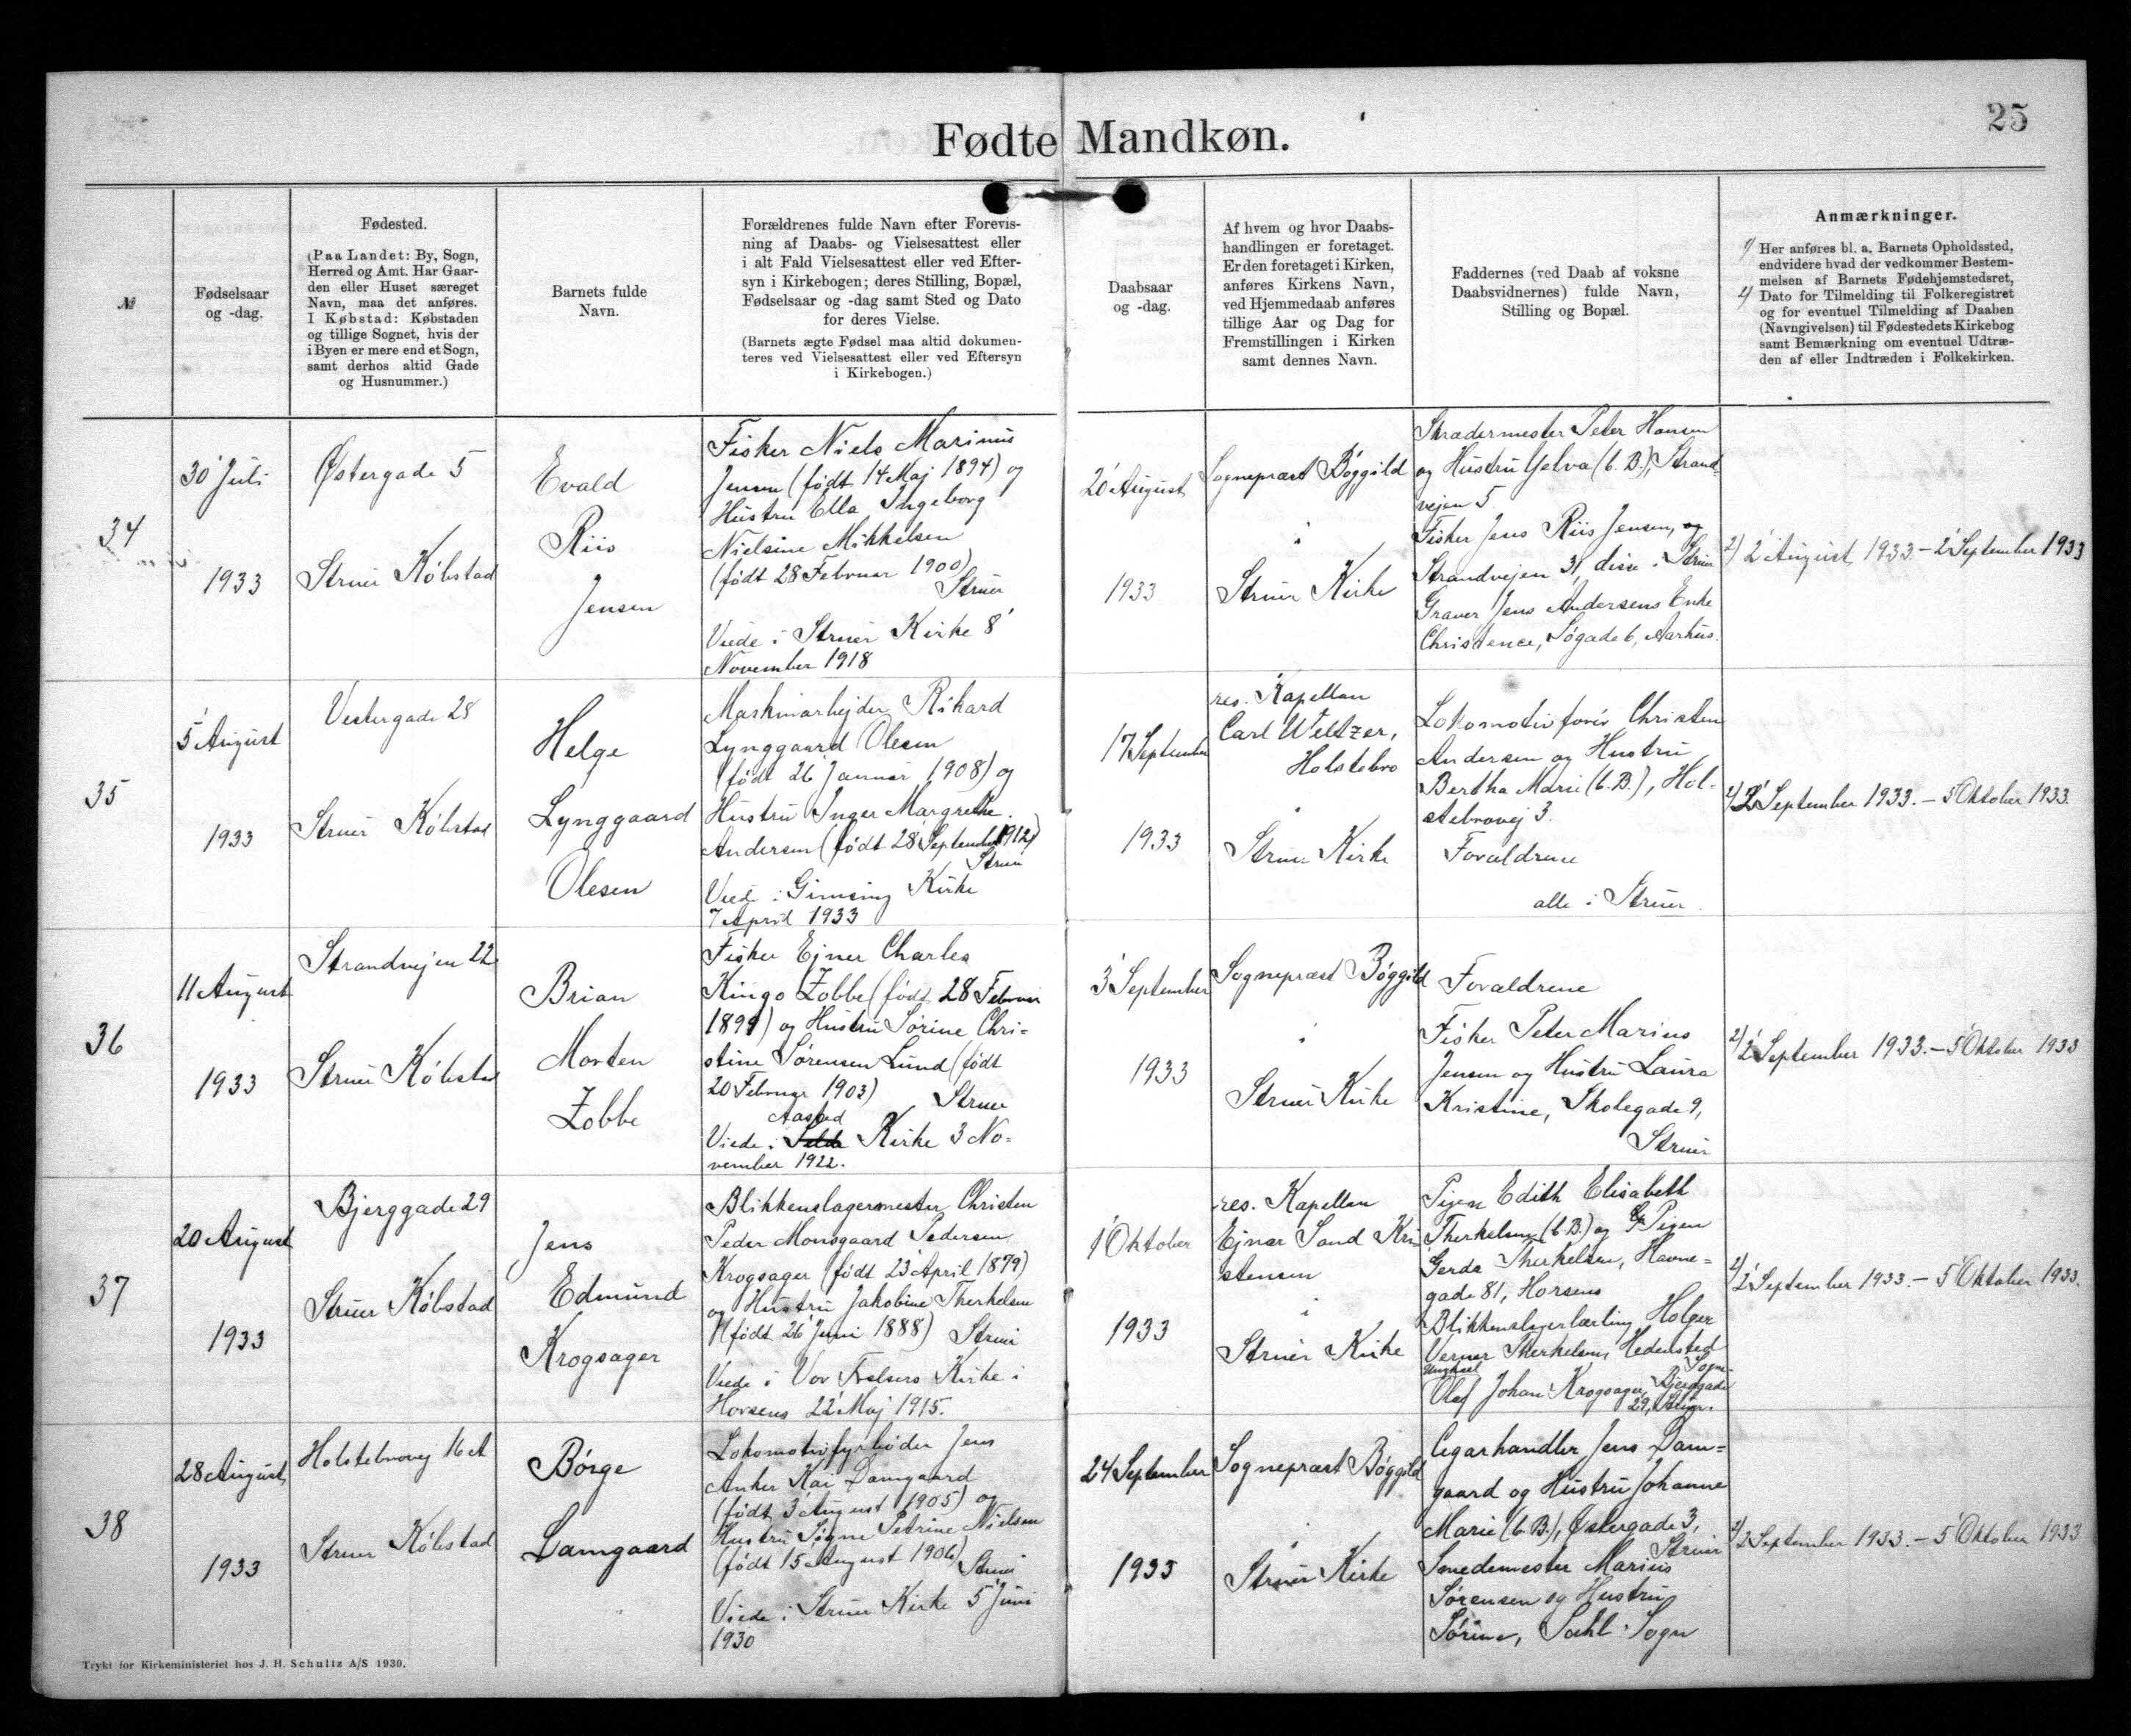 25
Fødte Mandkøn.
№
Fødselsaar
og -dag.
Fødested.
(Paa Landet: By, Sogn,
Herred og Amt. Har Gaar-
den eller Huset særeget
Navn, maa det anføres.
I Købstad: Købstaden
og tillige Sognet, hvis der
i Byen er mere end et Sogn,
samt derhos altid Gade
og Husnummer.)
Barnets fulde
Navn.
Forældrenes fulde Navn efter Forevis-
ning af Daabs- og Vielsesattest eller
i alt Fald Vielsesattest eller ved Efter-
syn i Kirkebogen; deres Stilling, Bopæl,
Fødselsaar og -dag samt Sted og Dato
for deres Vielse.
(Barnets ægte Fødsel maa altid dokumen-
teres ved Vielsesattest eller ved Eftersyn
i Kirkebogen.)
Daabsaar
og -dag.
Af hvem og hvor Daabs-
handlingen er foretaget.
Er den foretaget i Kirken,
anføres Kirkens Navn,
ved Hjemmedaab anføres
tillige Aar og Dag for
Fremstillingen i Kirken
samt dennes Navn.
Faddernes (ved Daab af voksne
Daabsvidnernes) fulde Navn,
Stilling og Bopæl.
Anmærkninger.
1) Her anføres bl. a. Barnets Opholdssted,
endvidere hvad der vedkommer Bestem-
melsen af Barnets Fødehjemstedsret,
2) Dato for Tilmelding til Folkeregistret
og for eventuel Tilmelding af Daaben
(Navngivelsen) til Fødestedets Kirkebog
samt Bemærkning om eventuel Udtræ-
den af eller Indtræden i Folkekirken.
34
30 Juli
1933
Østergade 5
Struer Købstad
Evald
Riis
Jensen
Fisker Niels Marinus
Jensen (født 14 Maj 1894) og
Hustru Ella Ingeborg
Nielsine Mikkelsen
(født 28 Februar 1900)
Struer
Viede i Struer Kirke 8
November 1918
20 August
1933
Sognepræst Bøggild
i
Struer Kirke
Skrædermester Peter Hansen
og Hustru Yelva (b. B.), Strand-
vejen 5
Fisker Jens Riis Jensen, og
Strandvejen 31, disse i Struer
Graver Jens Andersens Enke
Christence, Søgade 6, Aarhus.
2) 2 August 1933 - 2 September 1933
35
5 August
1933
Vestergade 28
Struer Købstad
Helge
Lynggaard
Olesen
Maskinarbejder Rikard
Lynggaard Olesen
(født 26 Januar 1908) og
Hustru Inger Margrethe
Andersen (født 28 September 1912)
Struer
Viede i Gimsing Kirke
7 April 1933
17 September
1933
res. Kapellan
Carl Weltzer,
Holstebro
i
Struer Kirke
Lokomotivfører Christen
Andersen og Hustru
Bertha Marie (b. B.), Hol-
stebrovej 3.
Forældrene
alle i Struer.
2) 2 September 1933. - 5 Oktober 1933.
36
11 August
1933
Strandvejen 22
Struer Købstad
Brian
Morten
Zobbe
Fisker Ejner Charles
Kingo Zobbe (født 28 Februar
1899) og Hustru Sørine Chri-
stine Sørensen Lund (født
20 Februar 1903)
Struer
Aasted
Viede i Kirke 3 No-
vember 1922.
3 September
1933
Sognepræst Bøggild
i
Struer Kirke
Forældrene
Fisker Peter Marius
Jensen og Hustru Laura
Kristine, Skolegade 9,
Struer
2) 2 September 1933. - 5 Oktober 1933
37
20 August
1933
Bjerggade 29
Struer Købstad
Jens
Edmund
Krogsager
Blikkenslagermester Christen
Peder Monsgaard Pedersen
Krogsager (født 23 April 1879)
og Hustru Jakobine Therkelsen
(født 26 Juni 1888) Struer
Viede i Vor Frelsers Kirke i
Horsens 22 Maj 1915.
1 Oktober
1933
res. Kapellan
Ejnar Sand Kri-
stensen
i
Struer Kirke
Pigen Edith Elisabeth
Therkelsen (b. B.) og Pigen
Gerda Therkelsen, Havne-
gade 81, Horsens
Blikkenslagerlærling Holger
Verner Therkelsen, Hedensted
Sogn.
Ungkarl
Olaf Johan Krogsager, Bjerggade
29, Struer.
2) 2 September 1933. - 5 Oktober 1933.
38
28 August
1933
Holstebrovej 16 A
Struer Købstad
Børge
Damgaard
Lokomotivfyrbøder Jens
Anker Kai Damgaard
(født 3 August 1905) og
Hustru Signe Petrine Nielsen
(født 15 August 1906)
Struer
Viede i Struer Kirke 5 Juni
1930
24 September
1933
Sognepræst Bøggild
i
Struer Kirke
Cigarhandler Jens Dam-
gaard og Hustru Johanne
Marie (b. B.), Østergade 3,
Struer
Smedemester Marius
Sørensen og Hustru
Sørine, Sahl Sogn
2) 2 September 1933. - 5 Oktober 1933
Trykt for Kirkeministeriet hos J. H. Schultz A/S 1930.